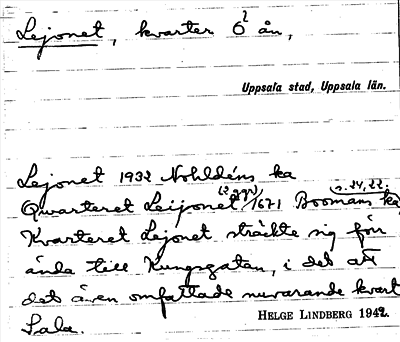 Lejonet, kvarter Ö² ån,
Uppsala stad, Uppsala län.
Lejonet 1932 Nohldéns ka
(2 ggr) n. 24, 22.
Qwarteret Leijonet 1671 Boomans ka
Kvarteret Lejonet sträckte sig förr
ända till Kungsgatan, i det att
det även omfattade nuvarande kvart
Sala.
HELGE LINDBERG 1942.